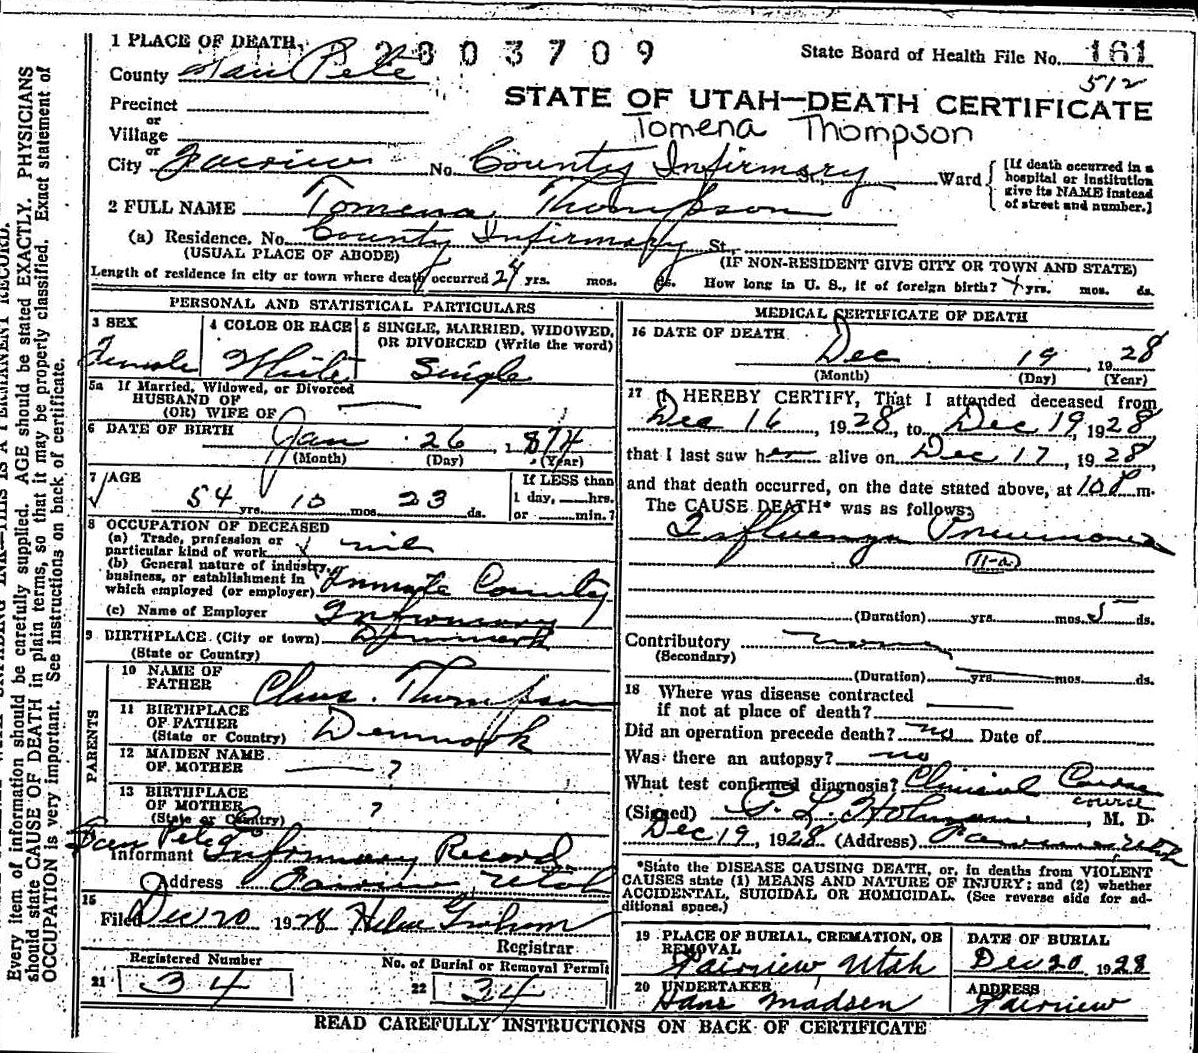 1 PLACE OF DEATH, 2803709 State Board of Health File No. 161
County San Pete 512
STATE OF UTAH—DEATH CERTIFICATE
Precinct
or
Village
Tomena Thompson
or
City Fairview No. County Infirmary St. Ward [If death occurred in a hospital or institution give its NAME instead of street and number.]
2 FULL NAME Tomena Thompson
(a) Residence. No. County Infirmary St.
(USUAL PLACE OF ABODE) (IF NON-RESIDENT GIVE CITY OR TOWN AND STATE)
Length of residence in city or town where death occurred 24 yrs. mos. ds. How long in U. S., if of foreign birth? yrs. mos. ds.
PERSONAL AND STATISTICAL PARTICULARS
3 SEX 4 COLOR OR RACE 5 SINGLE, MARRIED, WIDOWED, OR DIVORCED (Write the word)
Female White Single
5a If Married, Widowed, or Divorced
HUSBAND OF
(OR) WIFE OF
6 DATE OF BIRTH Jan 26, 1874
(Month) (Day) (Year)
7 AGE If LESS than
54 yrs. 10 mos. 23 ds. 1 day, hrs.
or min.?
8 OCCUPATION OF DECEASED
(a) Trade, profession or
particular kind of work nil
(b) General nature of industry,
business, or establishment in
which employed (or employer) Inmate County
(c) Name of Employer Infirmary
9 BIRTHPLACE (City or town) Denmark
(State or Country)
PARENTS
10 NAME OF
FATHER Chris. Thompson
11 BIRTHPLACE
OF FATHER
(State or Country) Denmark
12 MAIDEN NAME
OF MOTHER ?
13 BIRTHPLACE
OF MOTHER
(State or Country) ?
San Pete
Informant Infirmary Record
Address Fairview, Utah
15
Filed Dec 20 1928 Graham
Registrar
Registered Number No. of Burial or Removal Permit
21 34 22 34
MEDICAL CERTIFICATE OF DEATH
16 DATE OF DEATH
Dec 19 1928
(Month) (Day) (Year)
17 I HEREBY CERTIFY, That I attended deceased from
Dec 16, 1928, to Dec 19, 1928
that I last saw her alive on Dec 17, 1928,
and that death occurred, on the date stated above, at 10 m.
The CAUSE DEATH* was as follows:
Influenza Pneumonia
11-a
(Duration) yrs. mos. 5 ds.
Contributory none
(Secondary)
(Duration) yrs. mos. ds.
18 Where was disease contracted
if not at place of death?
Did an operation precede death? no Date of
Was there an autopsy? no
What test confirmed diagnosis? Clinical Course
course
(Signed) , M. D.
Dec 19, 1928 (Address) Fairview, Utah
*State the DISEASE CAUSING DEATH, or, in deaths from VIOLENT
CAUSES state (1) MEANS AND NATURE OF INJURY; and (2) whether
ACCIDENTAL, SUICIDAL OR HOMICIDAL. (See reverse side for ad-
ditional space.)
19 PLACE OF BURIAL, CREMATION, OR REMOVAL DATE OF BURIAL
Fairview, Utah Dec 20 1928
20 UNDERTAKER ADDRESS
Hans Madsen Fairview
READ CAREFULLY INSTRUCTIONS ON BACK OF CERTIFICATE
Every item of information should be carefully supplied. AGE should be stated EXACTLY. PHYSICIANS
should state CAUSE OF DEATH in plain terms, so that it may be properly classified. Exact statement of
OCCUPATION is very important. See instructions on back of certificate.